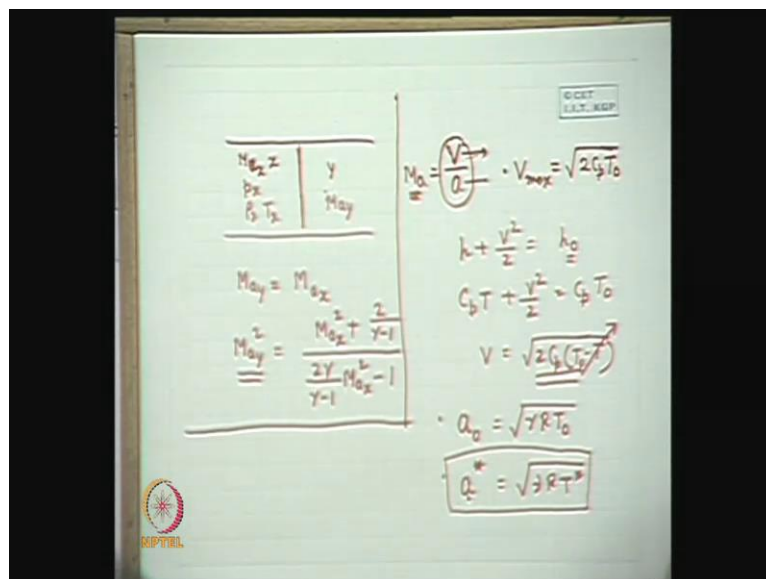 © CET
I.I.T. KGP
Maₓ x
pₓ
ρₓ Tₓ
y
Ma_y
Ma_y = Maₓ
Ma_y² = (Maₓ² + 2/(γ-1)) / (2γ/(γ-1) Maₓ² - 1)
Ma = V/a · V_max = √(2C_pT₀)
h + V²/2 = h₀
C_pT + V²/2 = C_pT₀
V = √(2C_p(T₀-T))
· a₀ = √(γRT₀)
· a* = √(γRT*)
NPTEL